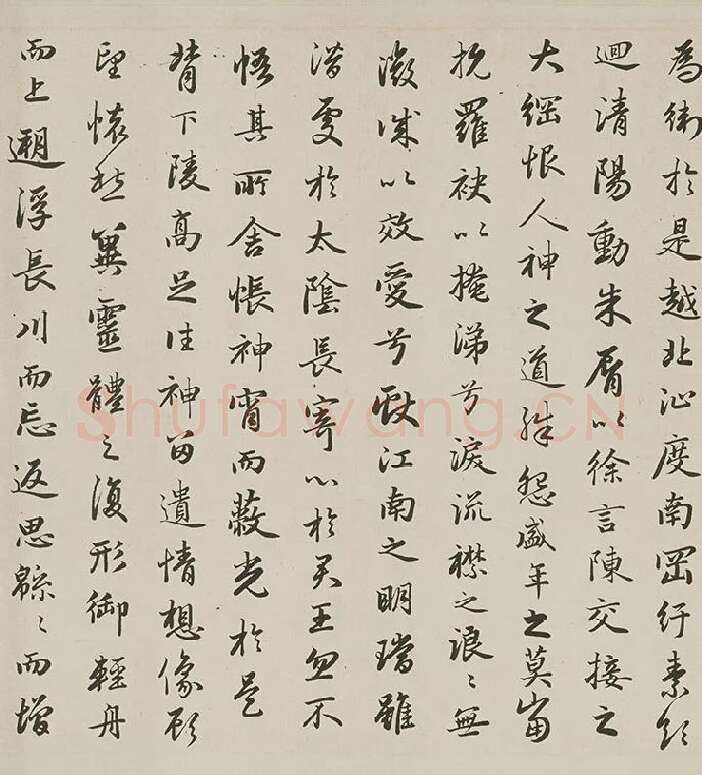 為衛於是越北沚度南岡紆素領
迴清陽動朱脣以徐言陳交接之
大綱恨人神之道殊怨盛年之莫當
抗羅袂以掩涕兮淚流襟之浪〻無
微誠以效愛兮獻江南之明璫雖
潛處於太陰長寄心於君王忽不
悟其所舍悵神宵而蔽光於是
背下陵高足往神留遺情想像顧
望懷愁冀靈體之復形御輕舟
而上遡浮長川而忘返思緜〻而增
Shufawang.CN